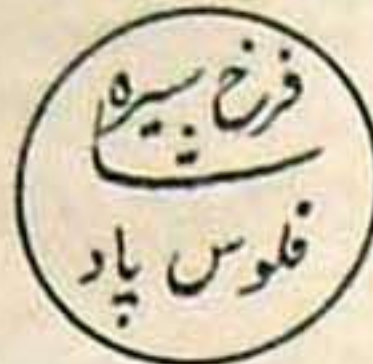 فرخ سیره
شا
فلوس پاد